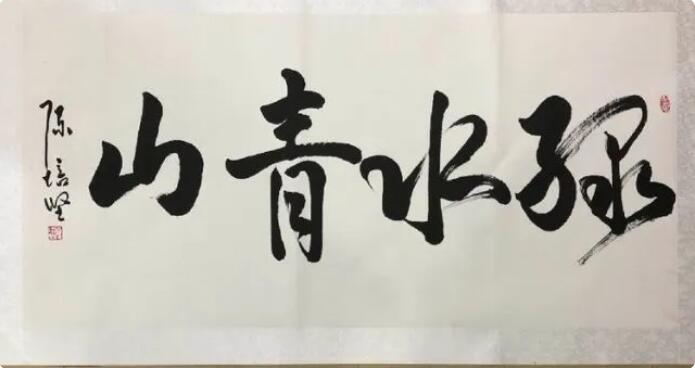 绿水青山
陈培坚